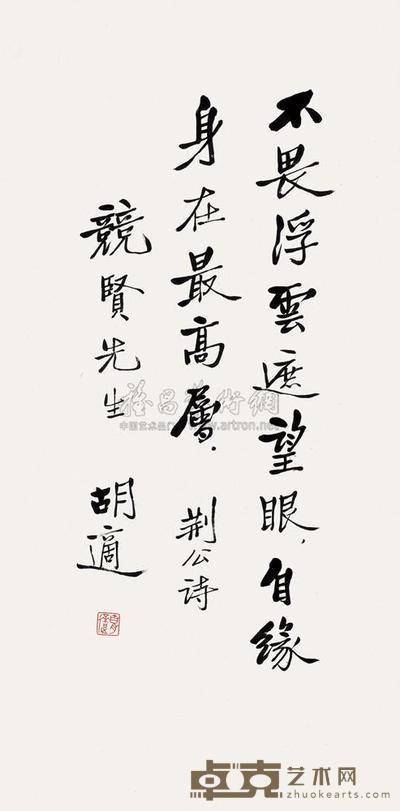 不畏浮雲遮望眼，自缘
身在最高層．荆公诗
競賢先生 胡適
雅昌藝術網
中国艺术品门户 www.artron.net
卓克艺术网
zhuokearts.com